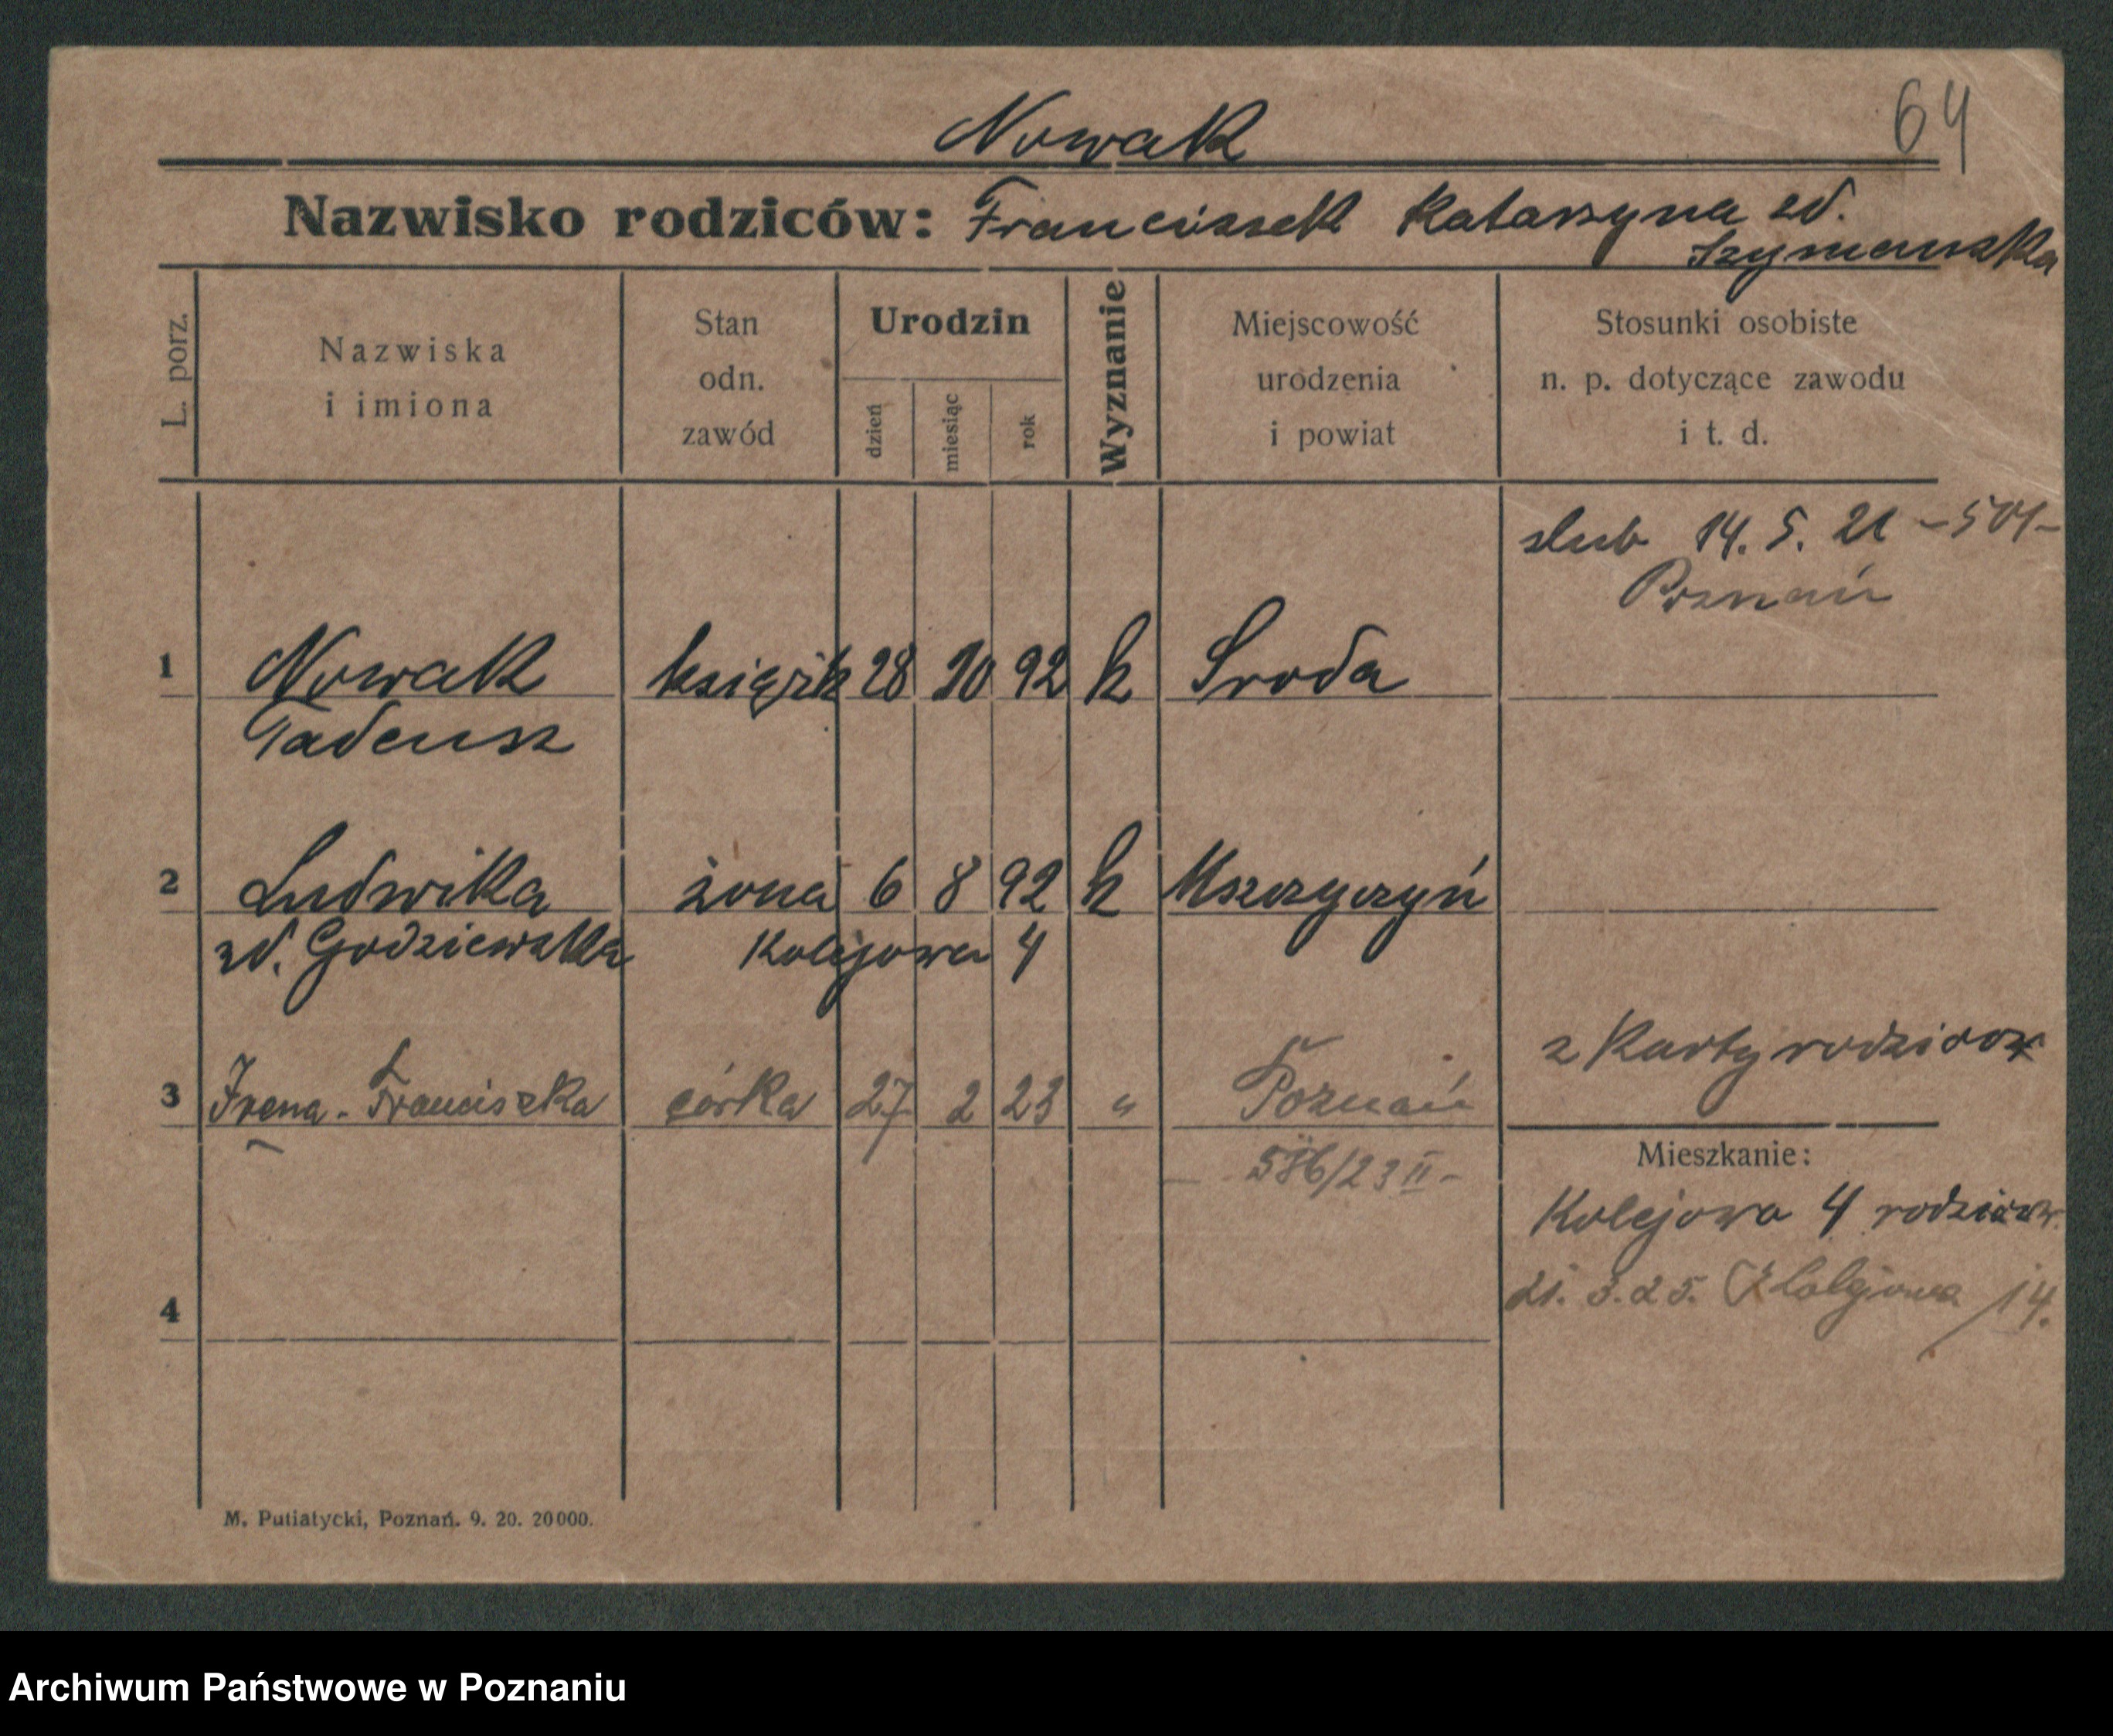 Nowak
64
Nazwisko rodziców: Franciszek Katarzyna zd.
Szymańska
L. porz.
Nazwiska
i imiona
Stan
odn.
zawód
Urodzin
dzień
miesiąc
rok
Wyznanie
Miejscowość
urodzenia
i powiat
Stosunki osobiste
n. p. dotyczące zawodu
i t. d.
slub 14. 5. 21 - 501 -
Poznań
1 Nowak księżk 28 10 92 k Sroda
Tadeusz
2 Ludwika żona 6 8 92 k Mszczyczyń
zd. Godziewska Kolejowa 4
z Karty rodziców
3 Irena - Franciszka córka 27 2 23 " Poznań
- 586/23 II -
Mieszkanie:
Kolejowa 4 rodziców
21. 3. 25. Kolejowa 14.
4
M. Putiatycki, Poznań. 9. 20. 20000.
Archiwum Państwowe w Poznaniu